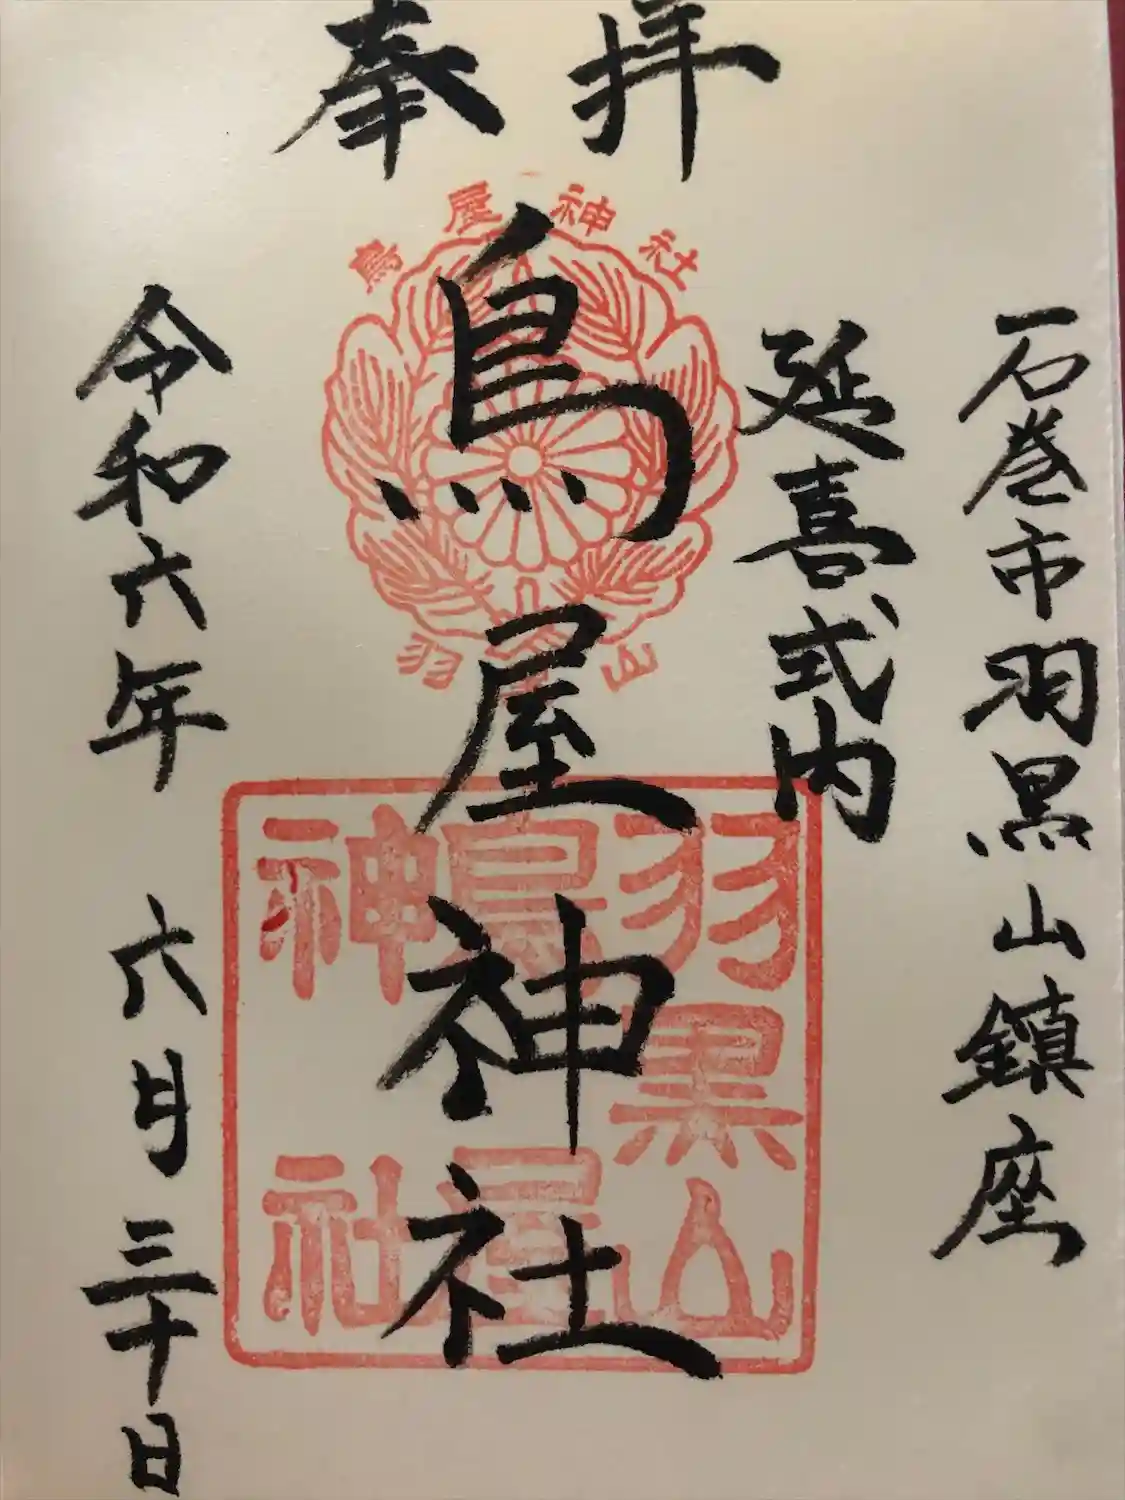 奉拝
石巻市羽黒山鎮座
延喜式内
鳥屋神社
令和六年 六月三十日
鳥屋神社
羽 山
羽黒山
鳥屋
神社